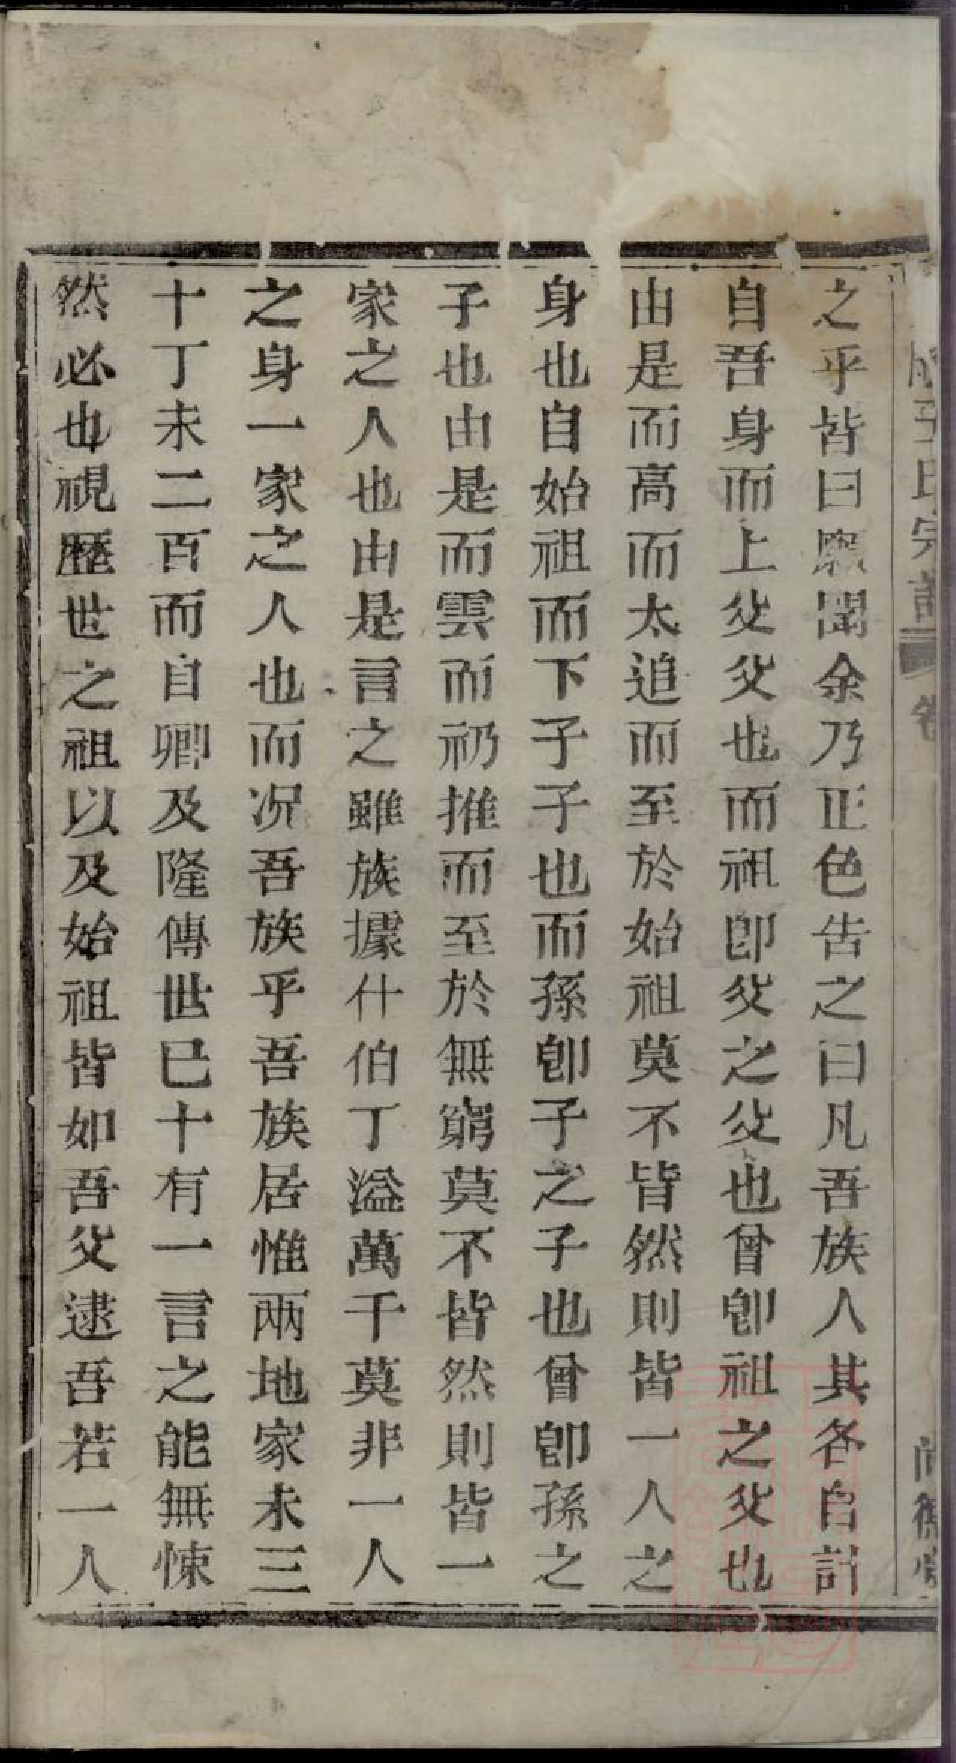 之乎皆曰願聞余乃正色告之曰凡吾族人其各自計
自吾身而上父父也而祖卽父之父也曾卽祖之父也
由是而高而太追而至於始祖莫不皆然則皆一人之
身也自始祖而下子子也而孫卽子之子也曾卽孫之
子也由是而雲而礽推而至於無窮莫不皆然則皆一
家之人也由是言之雖族據什伯丁溢萬千莫非一人
之身一家之人也而况吾族乎吾族居惟兩地家未三
十丁未二百而自卿及隆傳世已十有一言之能無悚
然必也視歷世之祖以及始祖皆如吾父逮吾若一人